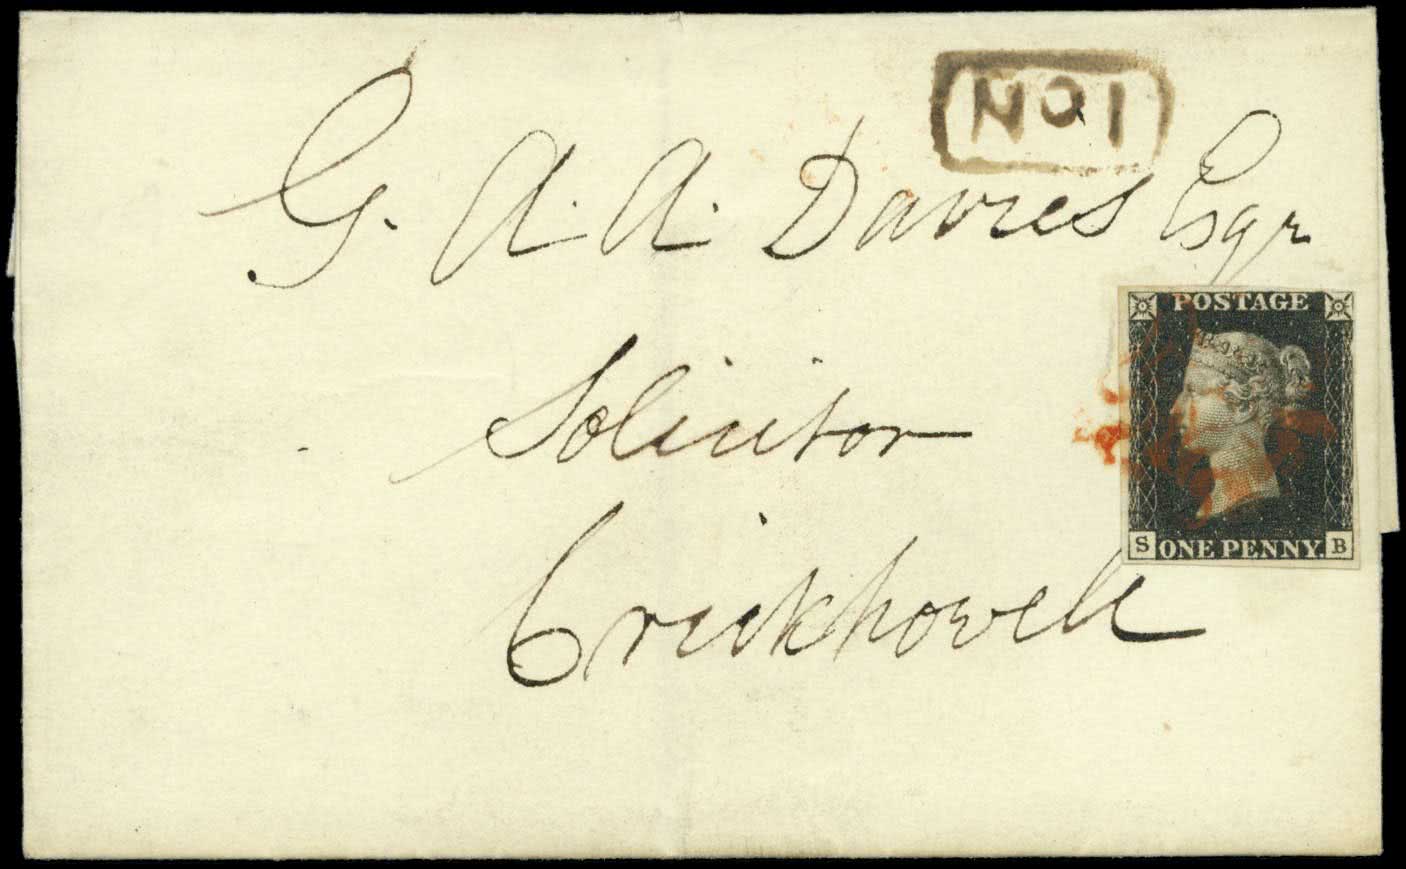 No 1
G. A. A. Davies Esqr
Solicitor
Crickhowell
POSTAGE
S ONE PENNY. B